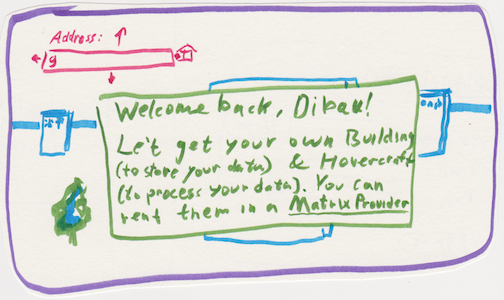 Address:
g
Welcome back, Dibau!
Let's get your own Building
(to store your data) & Hovercraft
(to process your data). You can
rent them in a Matrix Provider